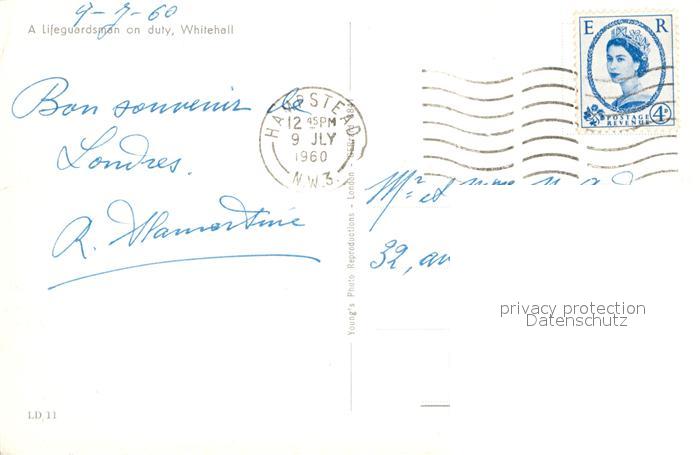 9-7-60
A Lifeguardsman on duty, Whitehall
Bon souvenir de
Londres.
HAMPSTEAD
12 45PM
9 JLY
1960
N.W.3.
E R
POSTAGE
REVENUE
4D
Mr et
32, av
Young's Photo Reproductions - London -
privacy protection
Datenschutz
LD 11